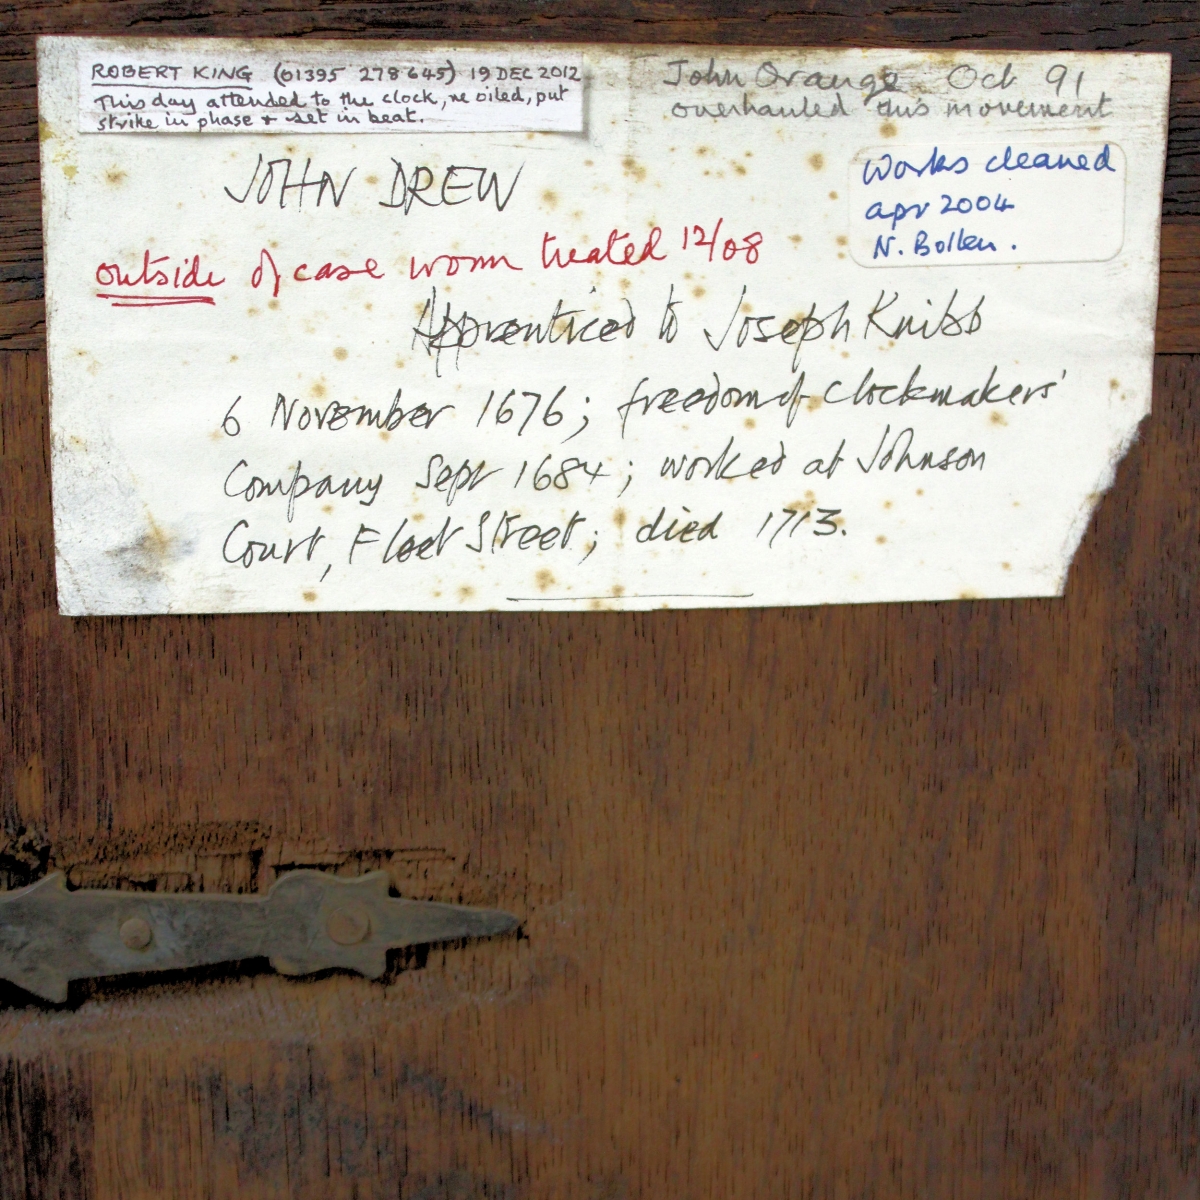 ROBERT KING (01395 278645) 19 DEC 2012
This day attended to the clock, re oiled, put
strike in phase + set in beat.
John Orange Oct 91
overhauled this movement
works cleaned
apr 2004
N. Bollen.
JOHN DREW
outside of case worm treated 12/08
Apprenticed to Joseph Knibb
6 November 1676; freedom of Clockmakers'
Company Sept 1684; worked at Johnson
Court, Fleet Street; died 1713.